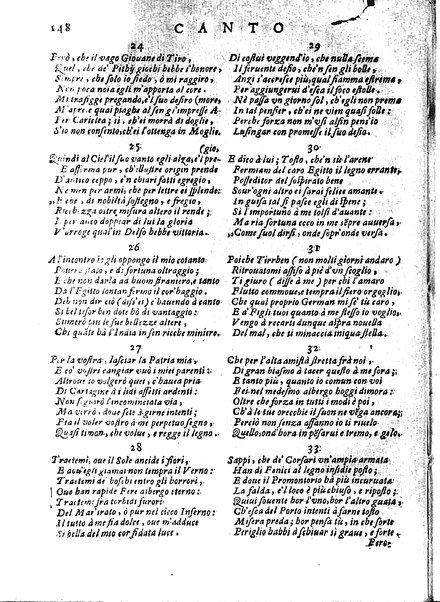 148 CANTO
24
Però, che il vago Giovane di Tiro,
Quel, che de' Pithij giochi hebbe l'honore,
Sempre, che solo io siedo, ò mi raggiro,
Non poca noia egli m'apporta al core.
Mi traffigge pregando, e'l suo desire (more,
M'apre, e quai piaghe al sen gl'impresse A-
Per Cariclea; ti. ch'ei morrà di doglia,
S'io non consento, ch'ei l'ottenga in Moglie.
25
(gio,
Quindi al Ciel'il suo vanto egli alza, e'l pre-
E assirma pur, ch'illustre origin prende
D'antico ceppo, e'n chiari fatti egregio,
Ne men per armi, che per lettre ei splende:
E che, di nobiltà sostegno, e fregio,
Ricchezza oltre misura altero il rende;
E per anco doppiar di lui la gloria
V'arroge qual'in Delfo hebbe vittoria.
26
A l'incontro io gli oppongo il mio cotanto
Potere stato, e di fortuna oltraggio;
E che non darla ad buom straniero, e tanto
Da l'Egitto lontan firmo il cor'haggio.
Deh non dir ciò (diss'ei) e' hauendo à canto
Si bel tesor ben dote hò di vantaggio:
Stimerò più le sue bellezze altere,
Che quāte hà l'India in sen ricche miniere.
27
Per la vostra, lasciar la Patria mia,
E co' vostri cangiar vuò i miei parenti:
Altroue io volgerò quei, c'hauea pria
Di Cartagine à i lidi affetti ardenti:
Non seguirò l'incominciata via,
Ma verrò, doue sete à girne intenti;
Fia il voler vostro à me perpetuo segno,
Quasi timon, che volue, e regge il legno.
28
Traetemi, oue il Sole ancide i fiori,
E dou'egli giamai non tempra il Verno:
Traetemi de' boschi entro gli horrori,
Oue han rapide Fere albergo eterno:
Traetemi fra torbidi furori
Del Mar'irato, ò pur nel cieco Inferno:
Il tutto à me fia dolce, oue m'adduce
Sì bella del mio cor fidata luce.
29
Di costui veggend'io, che nulla scema
Il feruente desio, che'n sen gli bolle,
Anzi s'accresce più, qual fiamma estrema,
Per aggiungerui d'esca il foco estolle:
Nè passa vn giorno sol, ch'egli non prema
In tal pensier, ch'ei ne vien quasi folle:
Perche forza non m'vsi alfin pens'io
Lusingar con promesse il suo desio.
30
E dico à lui; Tosto, che'n tù l'arene
Fermiam del caro Egitto il legno errante,
Possditor del sospirato bene
Sour'ogni altro ei sarai felice amante.
In guisa tal si pasce egli di spene;
Sì l'importuno à me tolsi d'auante:
Ma ria fortuna ecco in me s'apre auuersa,
Come suol dirsi, onde sopr'onde versa.
31
Poiche Tirrhen (non molti giorni andaro)
Ritrouatomi assiso à piè d'vn scoglio,
Ti giuro (disse à me) per chi l'amaro
Flutto commoue, e tempra il fiero orgoglio,
Che qual proprio German mi se' tù caro,
E a' Figli tuoi quanto à me stesso io voglio,
Vengo à recarti dunque aspra nouella
Del mal, che ti minaccia iniqua stella.
32
Che per l'alta amistà stretta frà noi,
Di gran biasmo à tacer questo à me fora;
E tanto più, quanto io comun con voi
Fei nel medesmo albergo hoggi dimora:
Oltre che sforza in tutti i modi è poi,
Ch'à le tue orecchie il suon ne vēga ancora;
Perciò non senza affanno io ti riuelo
Quello, ond'hora in pēsarui e tremo, e gelo.
33
Sappi, che de' Corsari vn'ampia armata
Han di Fenici al legno insidie poste;
E doue il Promontorio hà più incuruata
La falda, e'l loco è più chiuso, e riposto;
Quiui souente hor l'vno, hor l'altro guata,
Ch'esca del Porto intenti à farne tosto
Misera preda; hor pensa tù, in che forte
Periglio babbi à schiuar sì graue, e forte
Pero-